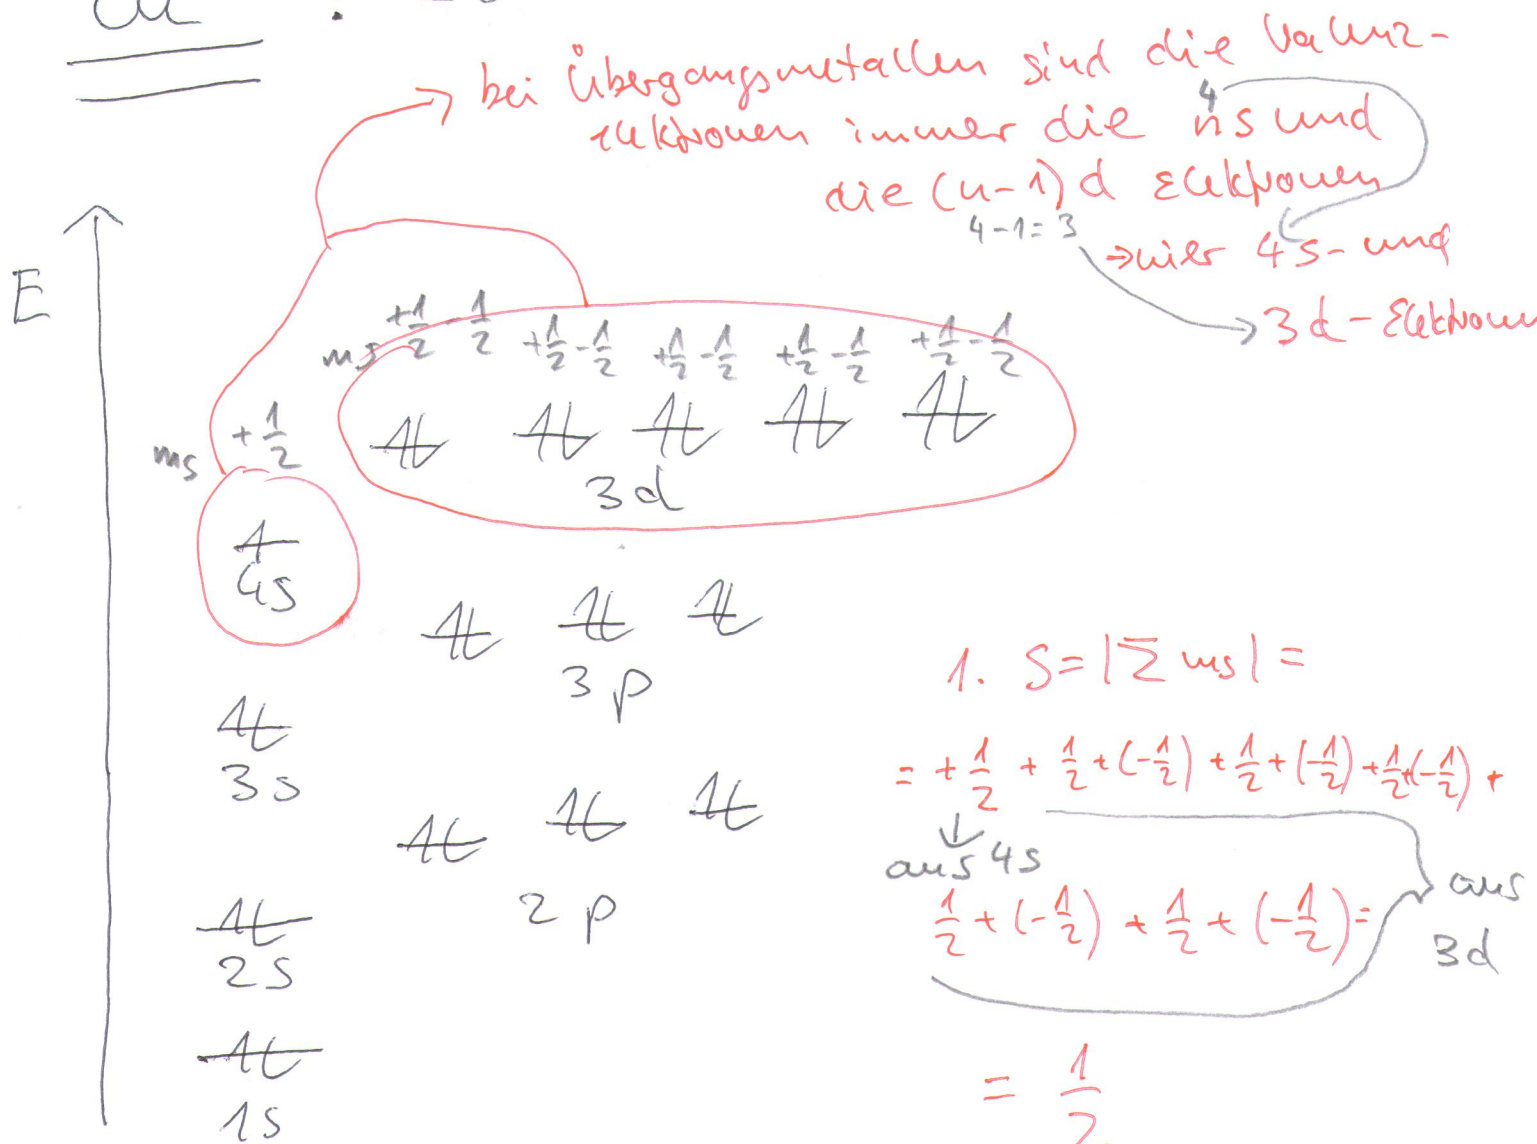 bei Übergangsmetallen sind die Valenz-
elektronen immer die ns und
4
die (n-1)d Elektronen
4-1=3
⇒ hier 4s- und
3d-Elektronen
E
ms +1/2 -1/2 +1/2 -1/2 +1/2 -1/2 +1/2 -1/2 +1/2 -1/2
3d
ms +1/2
4s
3p
3s
2p
2s
1s
1. S=|Σ ms| =
= +1/2 + 1/2+(-1/2) +1/2+(-1/2) +1/2+(-1/2) +
aus 4s
1/2+(-1/2) + 1/2 + (-1/2)=
aus
3d
= 1/2